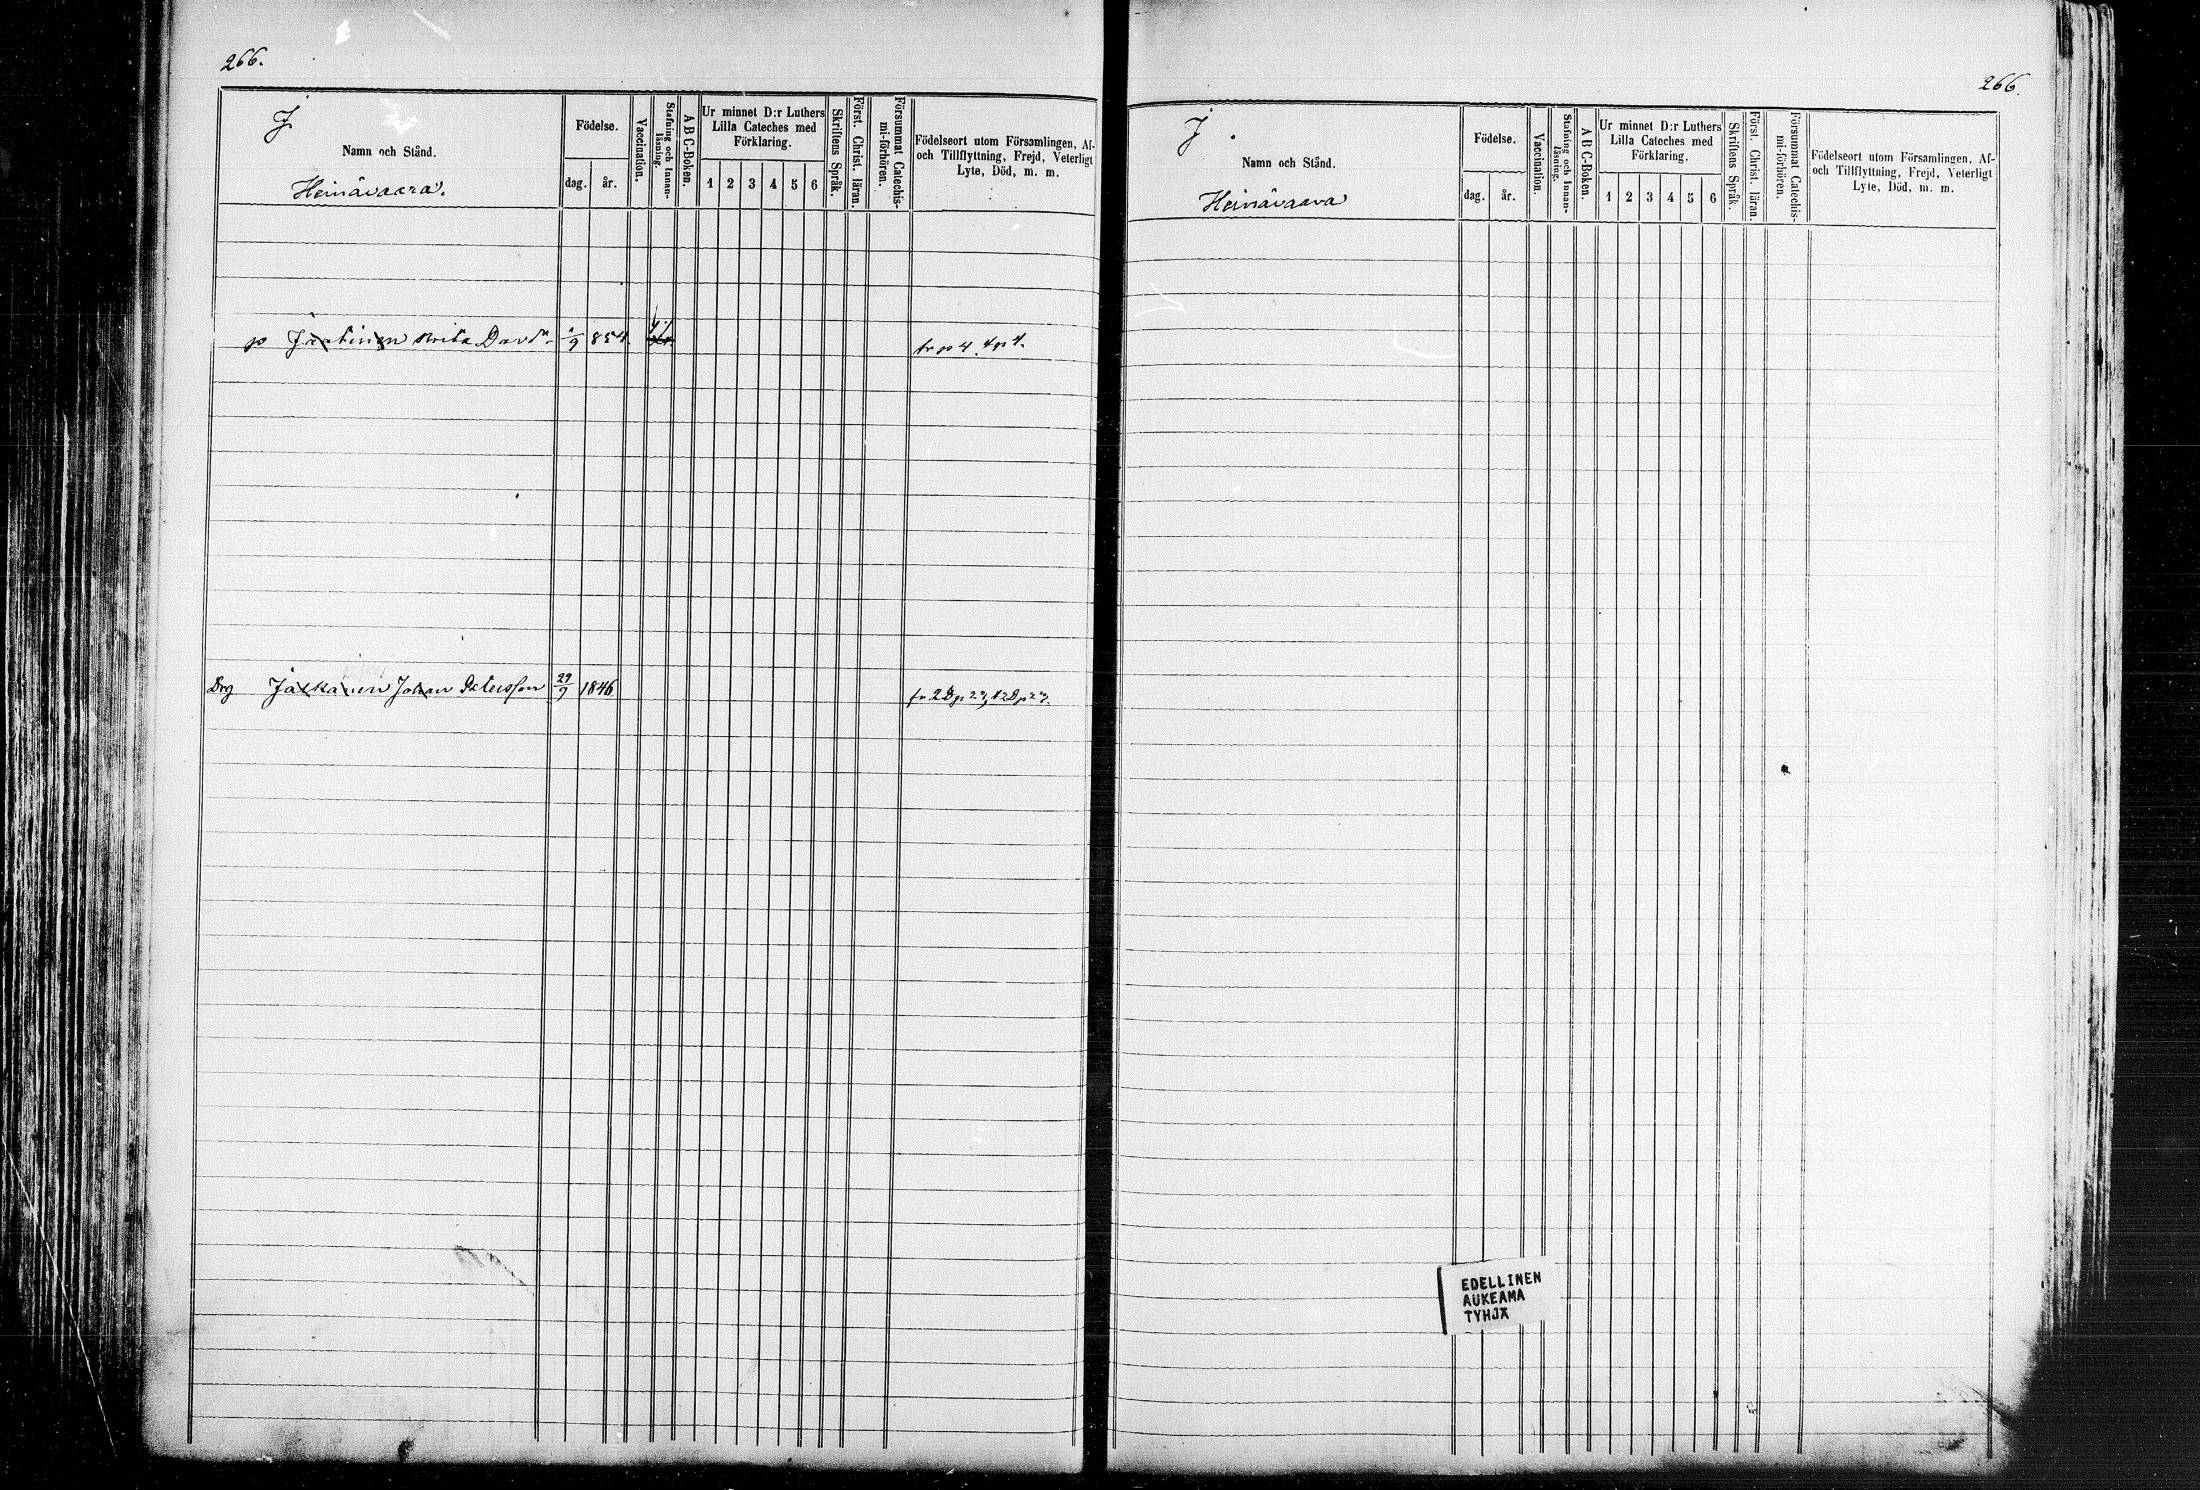 266.
J.
Namn och Stånd.
Heinävaara.
Födelse.
dag.
år.
Vaccination.
Stafning och Innan-
läsning.
A B C-Boken.
Ur minnet D:r Luthers
Lilla Cateches med
Förklaring.
1 2 3 4 5 6
Skriftens Språk.
Först. Christ. läran.
Försummat Catechis-
mi-förhören.
Födelseort utom Församlingen, Af-
och Tillflyttning, Frejd, Veterligt
Lyte, Död, m. m.
p Brita Davdr 854.
fr p 4. 4 p 4.
Drg Jalkanen Johan Petersson 29/9 1846
266.
J.
Namn och Stånd.
Heinävaara
Födelse.
dag.
år.
Vaccination.
Stafning och Innan-
läsning.
A B C-Boken.
Ur minnet D:r Luthers
Lilla Cateches med
Förklaring.
1 2 3 4 5 6
Skriftens Språk.
Först. Christ. läran.
Försummat Catechis-
mi-förhören.
Födelseort utom Församlingen, Af-
och Tillflyttning, Frejd, Veterligt
Lyte, Död, m. m.
EDELLINEN
AUKEAMA
TYHJÄ